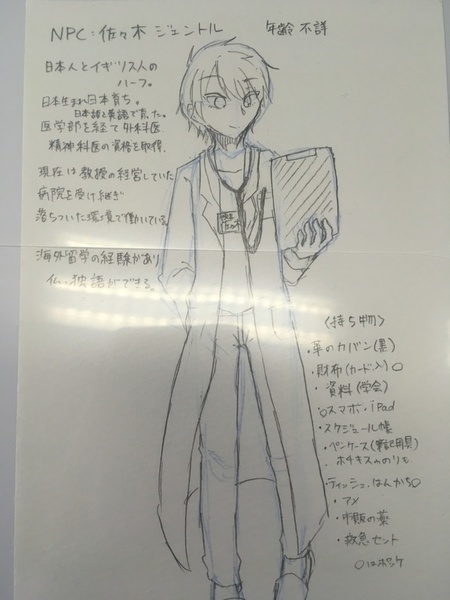 NPC:佐々木 ジェントル
年齢 不詳
日本人とイギリス人の
ハーフ。
日本生まれ日本育ち。
日本語と英語で育った。
医学部を経て外科医
精神科医の資格を取得。
現在は教授の経営していた
病院を受け継ぎ
落ちついた環境で働いている
海外留学の経験があり
仏、独語ができる。
<持ち物>
・革のカバン(黒)
・財布(カード入)○
・資料(学会)
○スマホ・iPad
・スケジュール帳
・ペンケース(筆記用具)
ホチキス のりも
・ティッシュ・はんかち○
・アメ
・市販の薬
・救急セット
○はポッケ